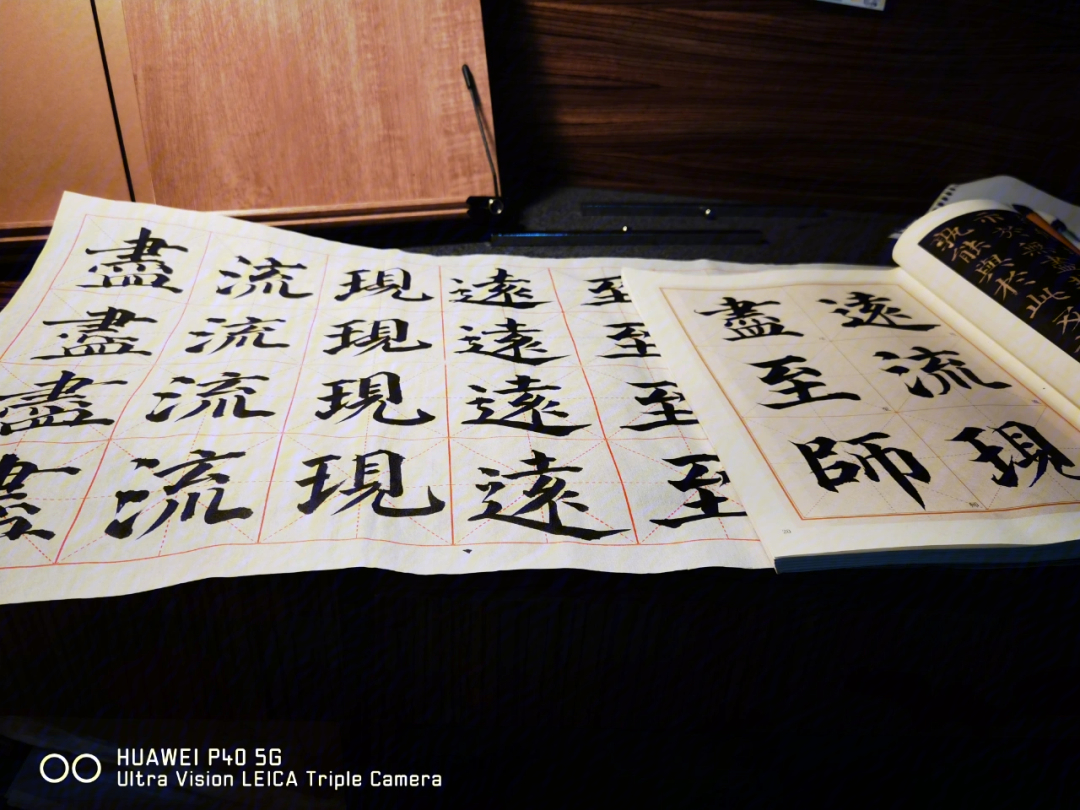 盡 流 現 遠 至
盡 流 現 遠 至
盡 流 現 遠 至
盡 流 現 遠 至
盡 遠
至 流
師 現
孰能與於此
HUAWEI P40 5G
Ultra Vision LEICA Triple Camera